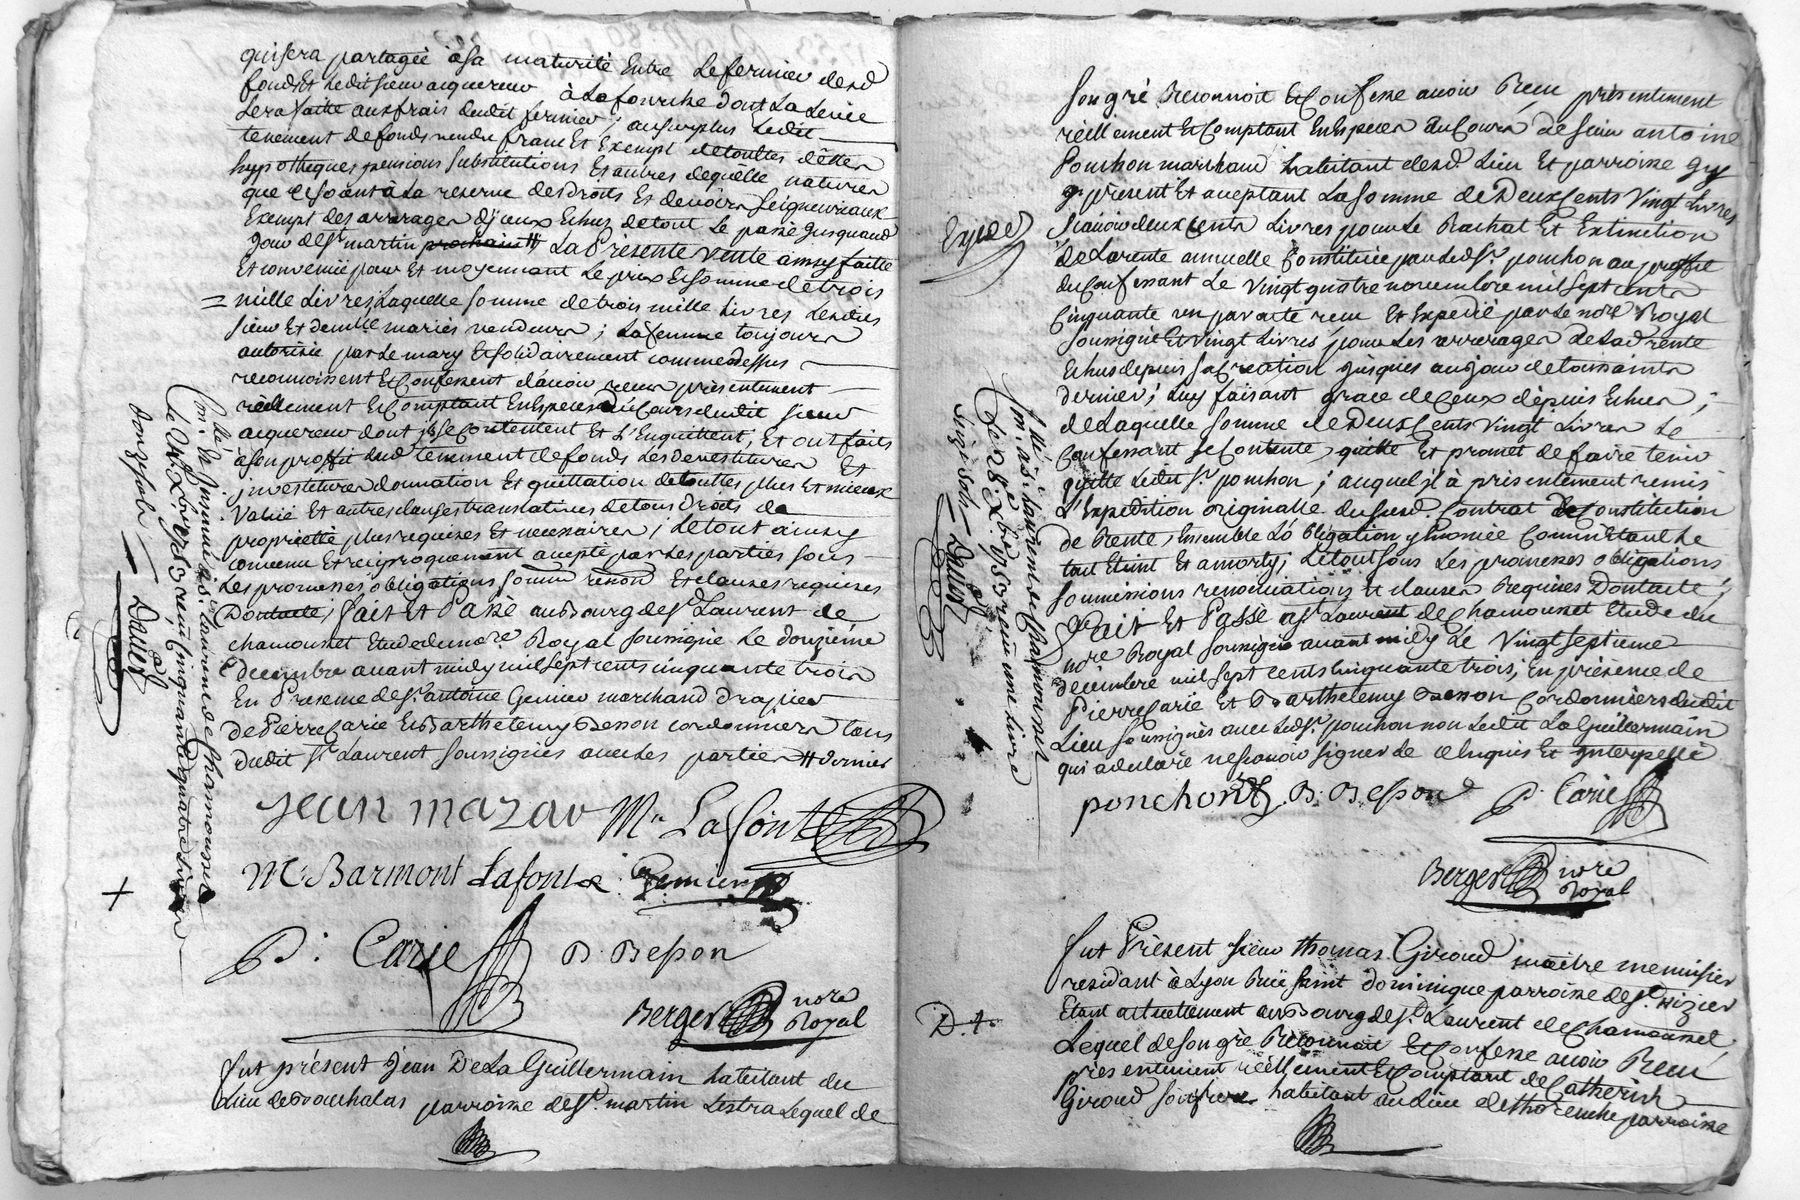 qui sera partagée à sa maturité Entre Le fermier desd
fonds Et Ledit sieur acquereur à La fourche dont La Levée
sera faitte aux frais dudit fermier; au surplus Ledit
tenement de fonds vendu franc Et Exempt de touttes dêttes
hypotheques, pensions substitutions Et autres dequelle nature
que ce soient à La reserve des Droits Et devoirs seigneuriaux
Exempt des arrerages d'jceux Echus de tout Le passé jusqu'au
jour de St martin prochain # La Presente vente ainsy faitte
Et convenüe pour Et moyennant Le prix Et somme de trois
mille Livres, Laquelle somme de trois mille Livres Lesdits
sieur Et demlle mariés vendeurs; La femme toujours
autorisée par Le mary Et solidairement comme dessus
reconnoissent Et Confessent d'avoir receu présentement
réellement Et Comptant En Especes du Cours dudit sieur
acquereur dont ils se Contentent Et L'Enquittent, Et ont faits
à son proffit dud tenement de fonds Les devestitures Et
jnvestitures donnation Et quittation de touttes plus Et mieux
value Et autres clauses translatives de tous Droits de
proprietté plus requises Et necessaires; Le tout ainsy
convenu Et reciproquement accepté par Les parties sous
Les promesses, obligations, soumis renon Et clauses requises
Dont acte, fait Et Passé au Bourg de St Laurent de
chamousset Etude du nore Royal soussigné Le douzieme
decembre avant midy mil sept cents cinquante trois
En Presence de Sr antoine Gemier marchand Drapier
de Pierre Carie Et Barthelemy Besson cordonniers tous
dudit St Laurent soussignés avec Les parties # dernier
Jean mazav Mr Lafont
Mc Barmont Lafont Gemier
P. Carie B Besson
Berger nore
Royal
fut présent Jean De La Guillermain habitant du
Lieu de Bouchalas parroisse de St martin Lestra Lequel de
Con. de St Laurent de Chamousset
reçu Cinquante quatre Livres
Daller
son gré Reconnoit Et Confesse avoir Receu présentement
réellement Et Comptant En Especes du Cours de sieur antoine
Ponchon marchand habitant dud Lieu Et parroisse jcy
present Et acceptant La somme de Deux Cents Vingt Livres
scavoir deux Cents Livres pour Le Rachat Et Extinction
De La rente annuelle Constituée par Led Sr. ponchon au proffit
du Confessant Le Vingt quatre novembre mil sept cents
Cinquante un par acte receu Et Expedié par Le nore Royal
soussigné Et Vingt Livres pour Les arrerages de Lad rente
Echus depuis sa Création jusques au jour de toussaints
dernier; Luy faisant grace de Ceux depuis Echus;
de Laquelle somme de Deux Cents Vingt Livres Le
Confessant se Contente, quitte Et promet de faire tenir
quitte Ledit Sr. ponchon; auquel il à présentement remis
L'Expedition originalle dususd. Contrat de Constitution
de Rente, Ensemble L'obligation y Enoncée Comme Etant Le
tout Eteint Et amorty, Le tout sous Les promesses obligations,
soumissions renonciations Et clauses Requises Dont acte;
Fait Et Passé a St Laurent de Chamousset Etude du
nore Royal soussigné avant midy Le Vingt septieme
decembre mil sept cents Cinquante trois; En présence de
Pierre Carie Et Barthelemy Besson Cordonniers dudit
Lieu soussignés avec Led Sr. ponchon non Ledit La Guillermain
qui a declaré ne scavoir signer de ce Enquis Et jnterpellé
ponchon B. Besson P. Carie
Berger nore
Royal
Exped
Con. à St Laurent de Chamousset
reçu une Livre
Daller
fut Présent sieur thomas Giroud maitre menuisier
residant à Lyon Ruë saint dominique parroisse de St. Nizier
Etant actuellement au Bourg de St. Laurent de Chamousset,
Lequel de son gré Reconnoit Et Confesse avoir Receu
présentement réellement Et Comptant de Catherin
Giroud son frere habitant au Lieu de thorenche parroisse
D. t.